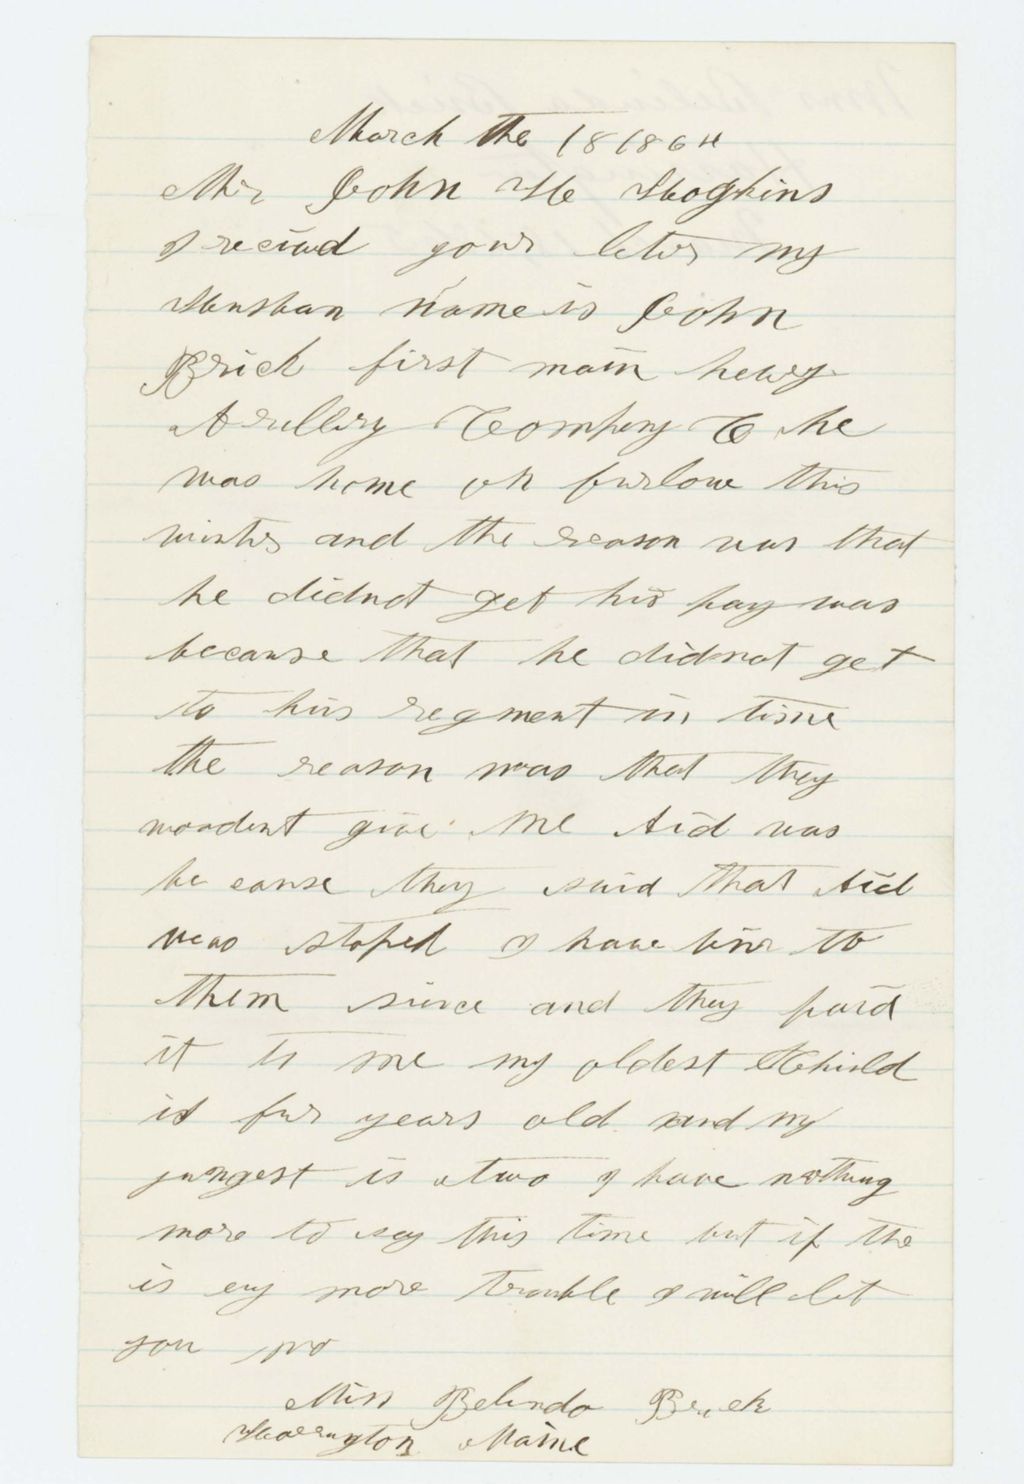 March the 18 1864
Mr John He Hogkins
I recived your leter my
Hunsban name is John
Brick first main hevey
Arullery Company C he
was home on furlow this
winter and the reason was that
he didnot get his pay was
because that he didnot get
to his regment in time
the reason was that they
woodent give me Aid was
be cause they said that Aid
was stoped I have bine to
them since and they paid
it to me my oldest Chirld
is fur years old and my
yungest is two I have nothing
more to say this time but if the
is eny more trouble I will let
you no
Miss Belinda Brick
Harrington Maine